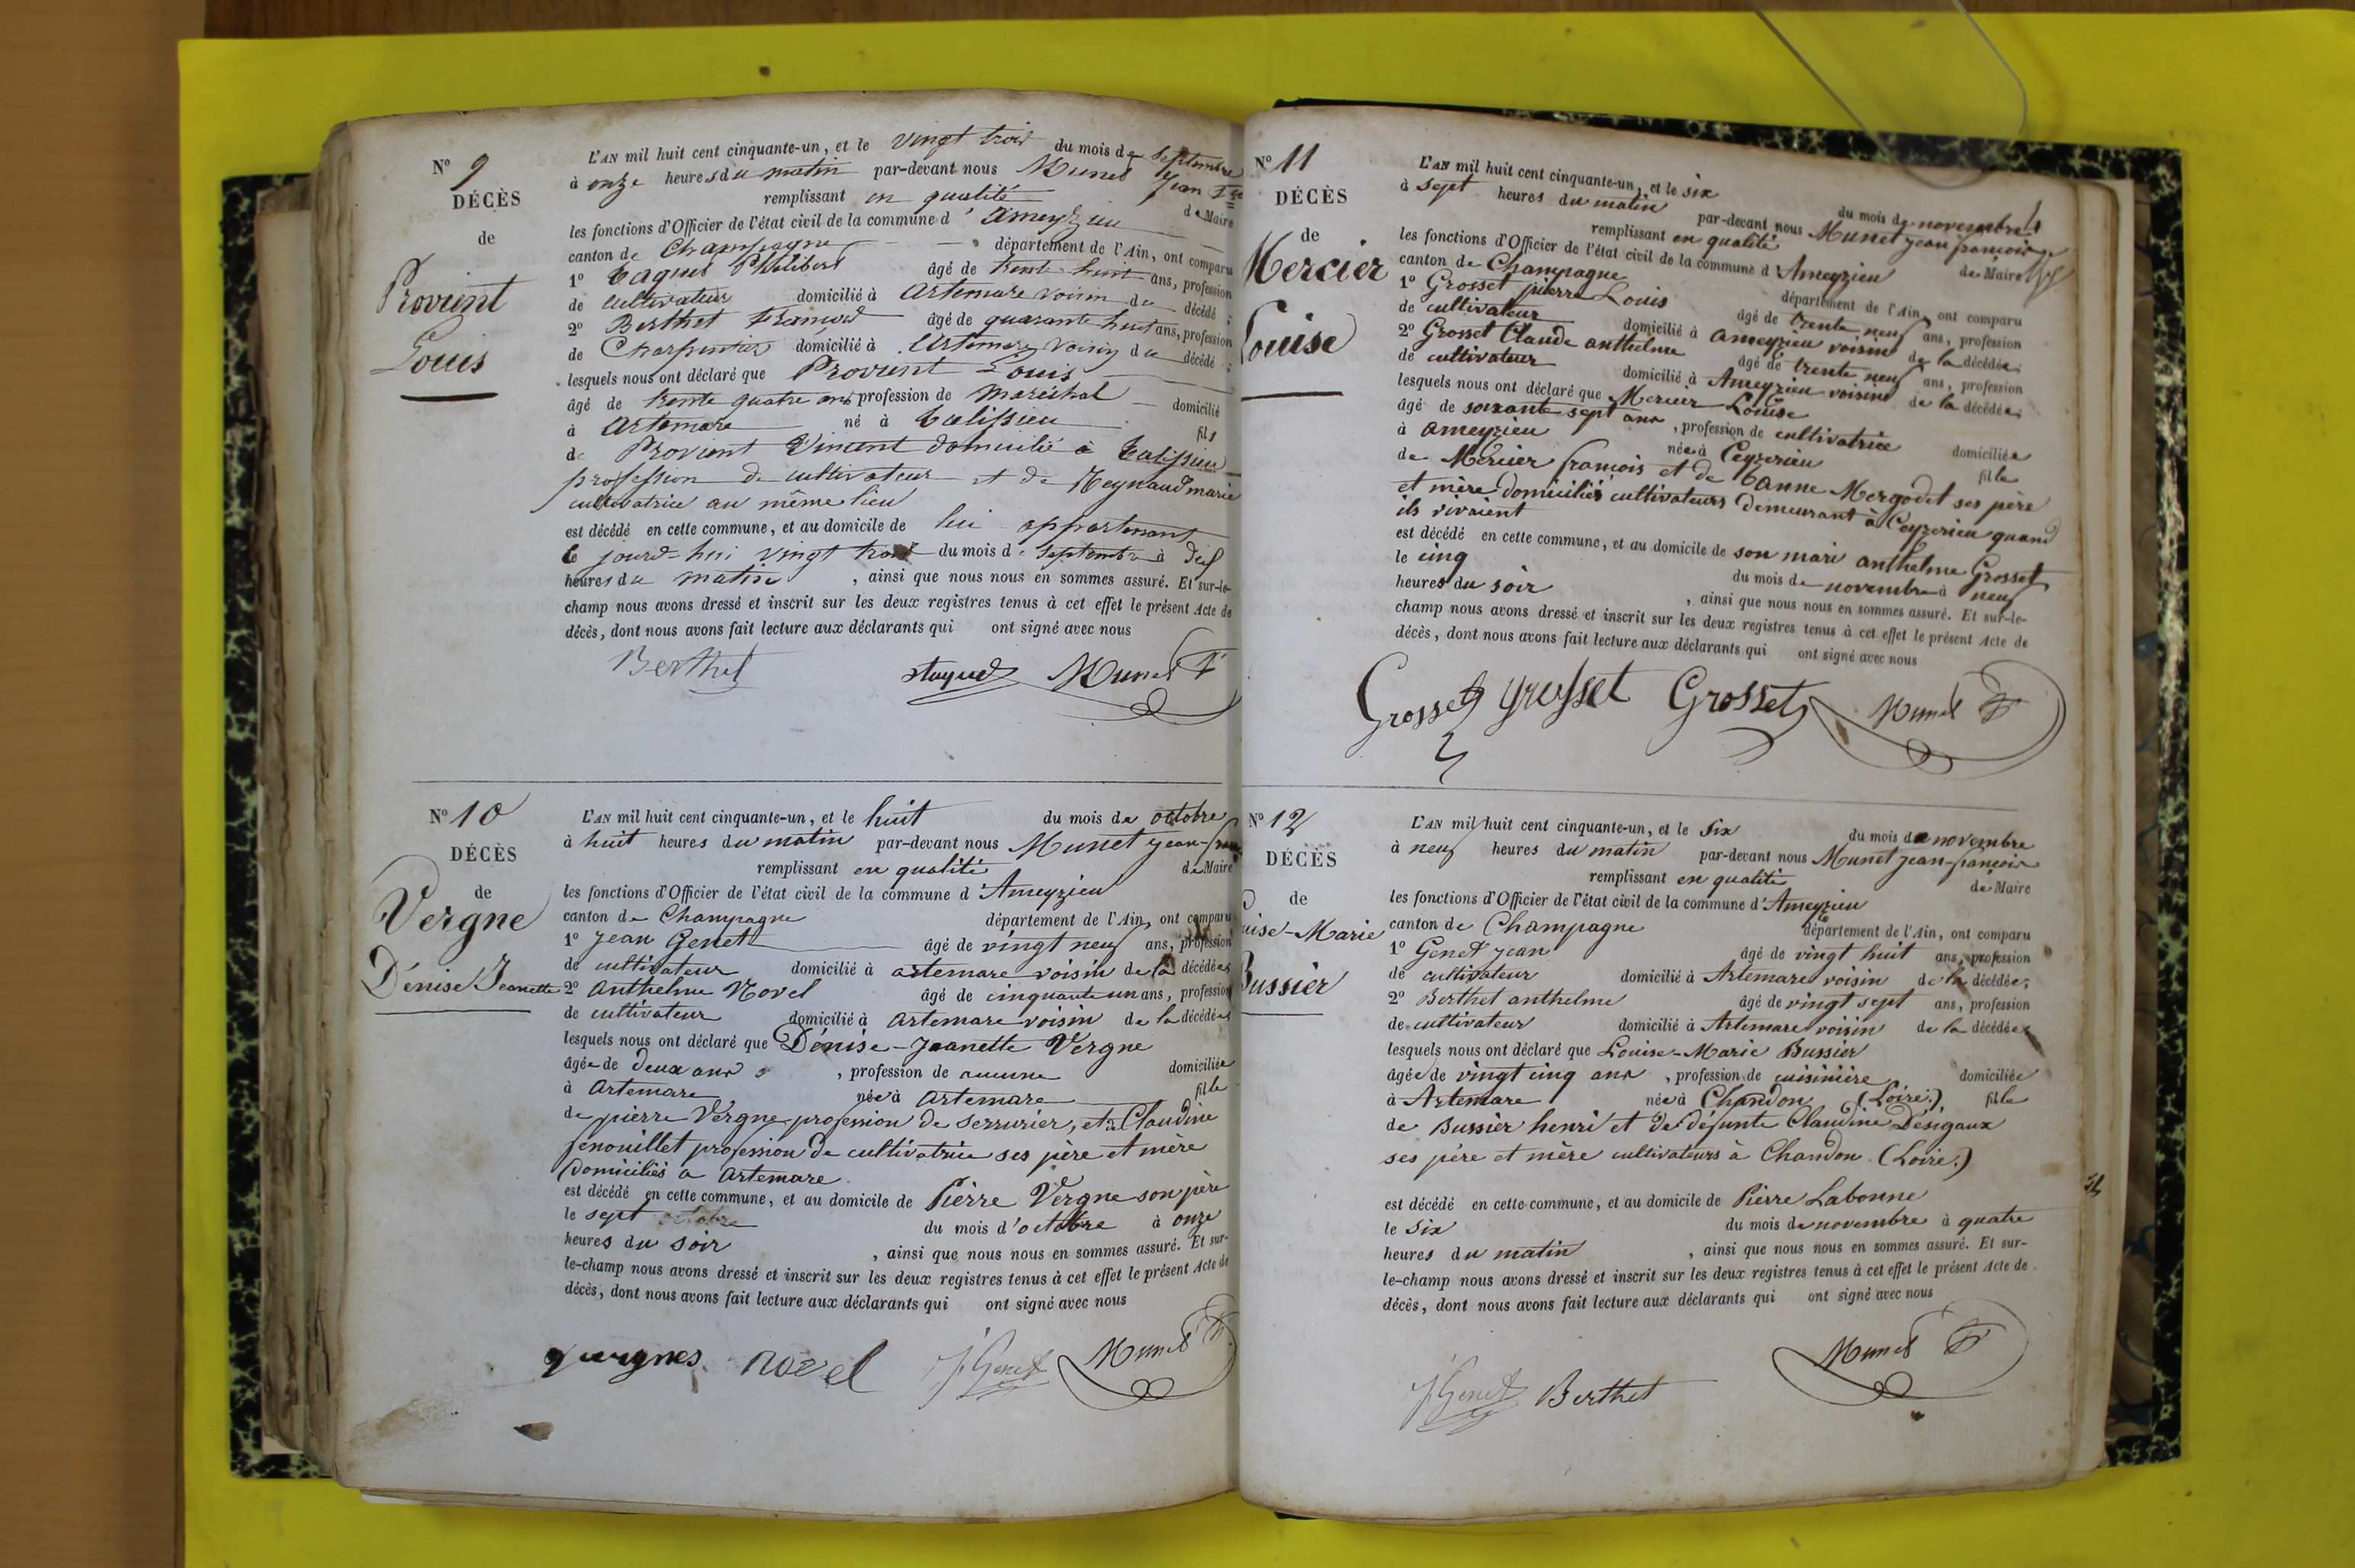 N° 9
DÉCÈS
de
Provient
Louis
L'AN mil huit cent cinquante-un, et le vingt trois du mois de Septembre
à onze heures du matin par-devant nous Munet Jean
remplissant en qualité de Maire
les fonctions d'Officier de l'état civil de la commune d'Ameyzieu
canton de Champagne département de l'Ain, ont comparu
1° Taquet Philibert âgé de trente huit ans, profession
de cultivateur domicilié à Artemare voisin du décédé;
2° Berthet François âgé de quarante huit ans, profession
de Charpentier domicilié à Artemare voisin du décédé;
lesquels nous ont déclaré que Provient Louis
âgé de trente quatre ans profession de Maréchal domicilié
à Artemare né à Talissieu fils
de Provient Vincent domicilié à Talissieu
profession de cultivateur et de Reynaud marie
cultivatrice au même lieu
est décédé en cette commune, et au domicile de lui appartenant
le jourd-hui vingt trois du mois de Septembre à dix
heures du matin, ainsi que nous nous en sommes assuré. Et sur-le-
champ nous avons dressé et inscrit sur les deux registres tenus à cet effet le présent Acte de
décès, dont nous avons fait lecture aux déclarants qui ont signé avec nous
Berthet Munet
N° 10
DÉCÈS
de
Vergne
Dénise Jeanette
L'AN mil huit cent cinquante-un, et le huit du mois de octobre
à huit heures du matin par-devant nous Munet jean-
remplissant en qualité de Maire
les fonctions d'Officier de l'état civil de la commune d'Ameyzieu
canton de Champagne département de l'Ain, ont comparu
1° Jean Genet âgé de vingt neuf ans, profession
de cultivateur domicilié à artemare voisin de la décédée
2° Anthelme Novel âgé de cinquante un ans, profession
de cultivateur domicilié à artemare voisin de la décédée
lesquels nous ont déclaré que Dénise-Jeanette Vergne
âgée de deux ans, profession de aucune domiciliée
à Artemare née à Artemare fille
de pierre Vergne profession de serrurier, et de Claudine
fenouillet profession de cultivatrice ses père et mère
domiciliés à Artemare
est décédé en cette commune, et au domicile de Pierre Vergne son père
le sept octobre du mois d'octobre à onze
heures du soir, ainsi que nous nous en sommes assuré. Et sur-
le-champ nous avons dressé et inscrit sur les deux registres tenus à cet effet le présent Acte de
décès, dont nous avons fait lecture aux déclarants qui ont signé avec nous
novel J Genet Munet
N° 11
DÉCÈS
de
Mercier
Louise
L'AN mil huit cent cinquante-un, et le six du mois de novembre
à sept heures du matin par-devant nous Munet jean françois
remplissant en qualité de Maire
les fonctions d'Officier de l'état civil de la commune d'Ameyzieu
canton de Champagne département de l'Ain, ont comparu
1° Grosset pierre Louis âgé de trente neuf ans, profession
de cultivateur domicilié à Ameyzieu voisin de la décédée;
2° Grosset Claude anthelme âgé de trente neuf ans, profession
de cultivateur domicilié à Ameyzieu voisins de la décédée;
lesquels nous ont déclaré que Mercier Louise
âgé de soixante sept ans, profession de cultivatrice domiciliée
à Ameyzieu née à Ceyzerieu fille
de Mercier françois et de anne Mergodet ses père
et mère domiciliés cultivateurs demeurant à Ceyzerieu quand
ils vivaient
est décédé en cette commune, et au domicile de son mari anthelme Grosset
le cinq du mois de novembre à neuf
heures du soir, ainsi que nous nous en sommes assuré. Et sur-le-
champ nous avons dressé et inscrit sur les deux registres tenus à cet effet le présent Acte de
décès, dont nous avons fait lecture aux déclarants qui ont signé avec nous
Grosset grosset Grosset Munet
N° 12
DÉCÈS
de
uise-Marie
Bussier
L'AN mil huit cent cinquante-un, et le Six du mois de novembre
à neuf heures du matin par-devant nous Munet jean-françois
remplissant en qualité de Maire
les fonctions d'Officier de l'état civil de la commune d'Ameyzieu
canton de Champagne département de l'Ain, ont comparu
1° Genet jean âgé de vingt huit ans, profession
de cultivateur domicilié à Artemare voisin de la décédée;
2° Berthet anthelme âgé de vingt sept ans, profession
de cultivateur domicilié à Artemare voisin de la décédée
lesquels nous ont déclaré que Louise-Marie Bussier
âgée de vingt cinq ans, profession de cuisinière domiciliée
à Artemare née à Chandon (Loire.) fille
de Bussier henri et de défunte Claudine Désigaux
ses père et mère cultivateurs à Chandon (Loire.)
est décédé en cette commune, et au domicile de Pierre Labonne
le Six du mois de novembre à quatre
heures du matin, ainsi que nous nous en sommes assuré. Et sur-
le-champ nous avons dressé et inscrit sur les deux registres tenus à cet effet le présent Acte de
décès, dont nous avons fait lecture aux déclarants qui ont signé avec nous
J Genet Berthet Munet